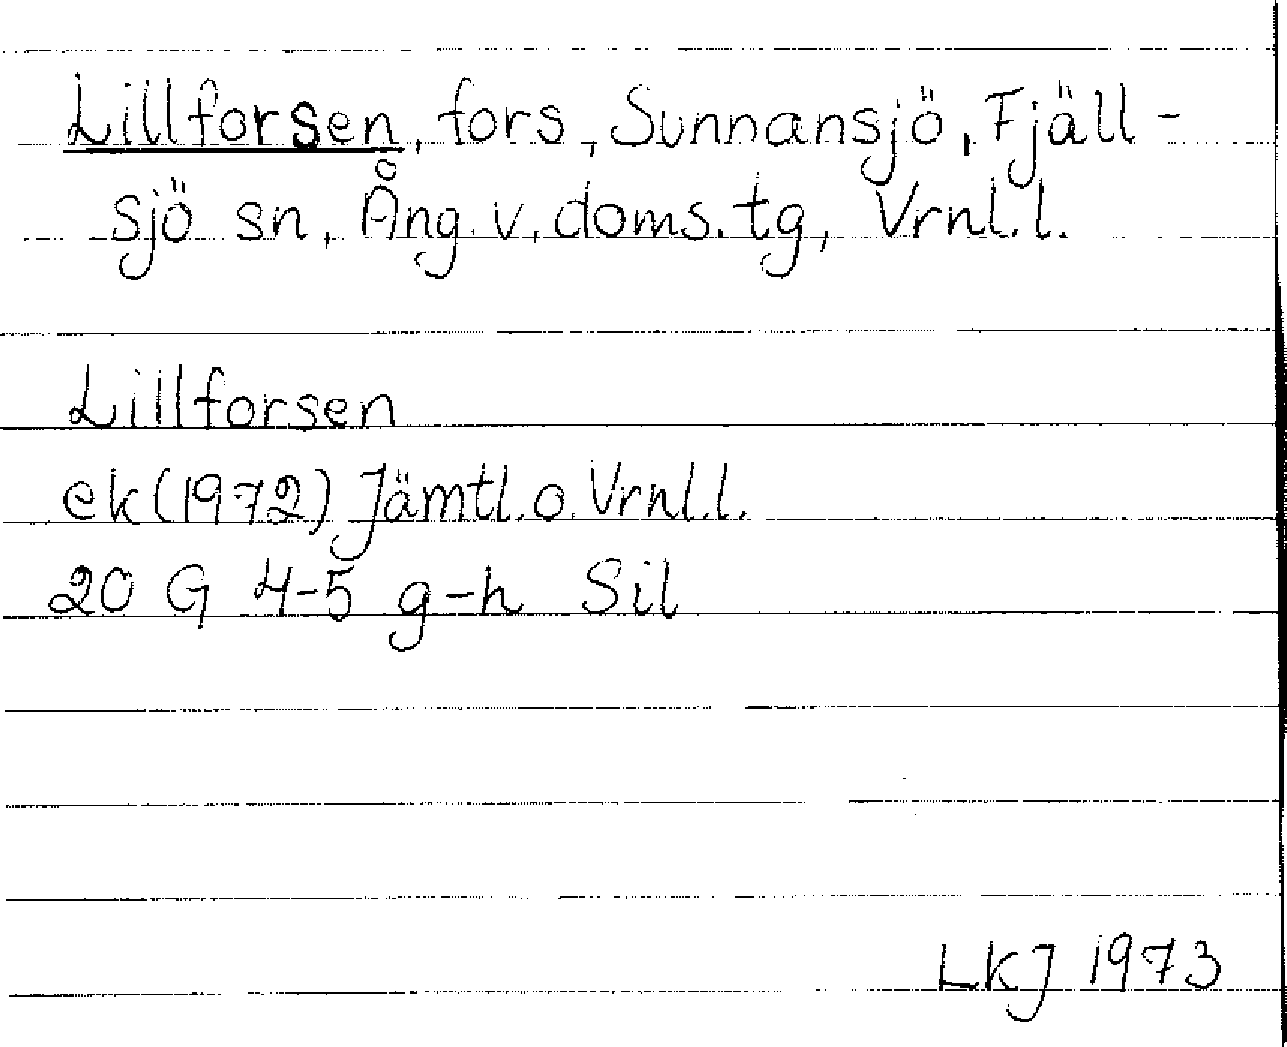 Lillforsen, fors, Sunnansjö, Fjäll-
sjö sn, Ång. v. doms. tg, Vrnl. l.
Lillforsen
ek (1972) Jämtl. o. Vrnl. l.
20 G 4-5 g-h Sil
LKJ 1973